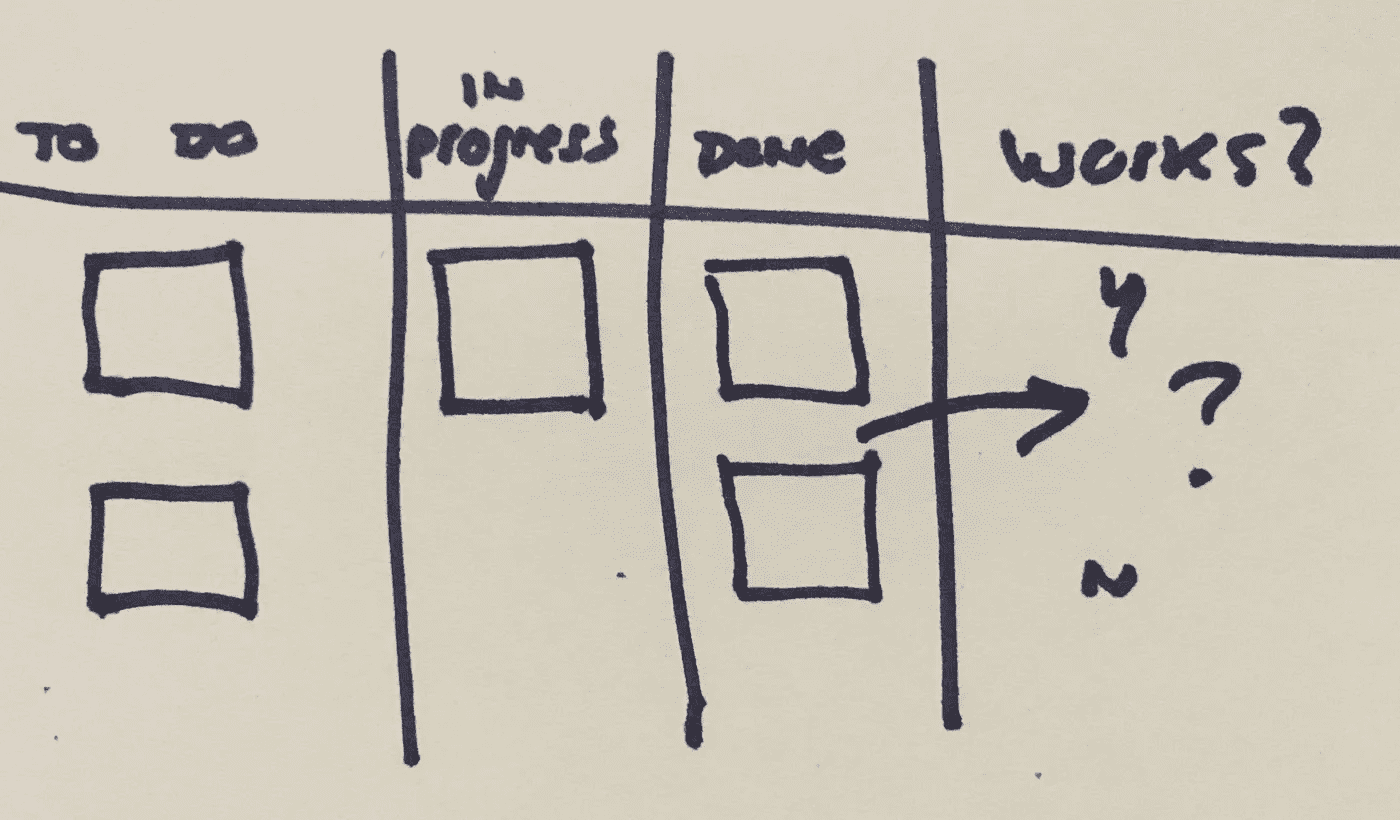 TO DO
IN
progress
DONE
WORKS?
Y
?
N